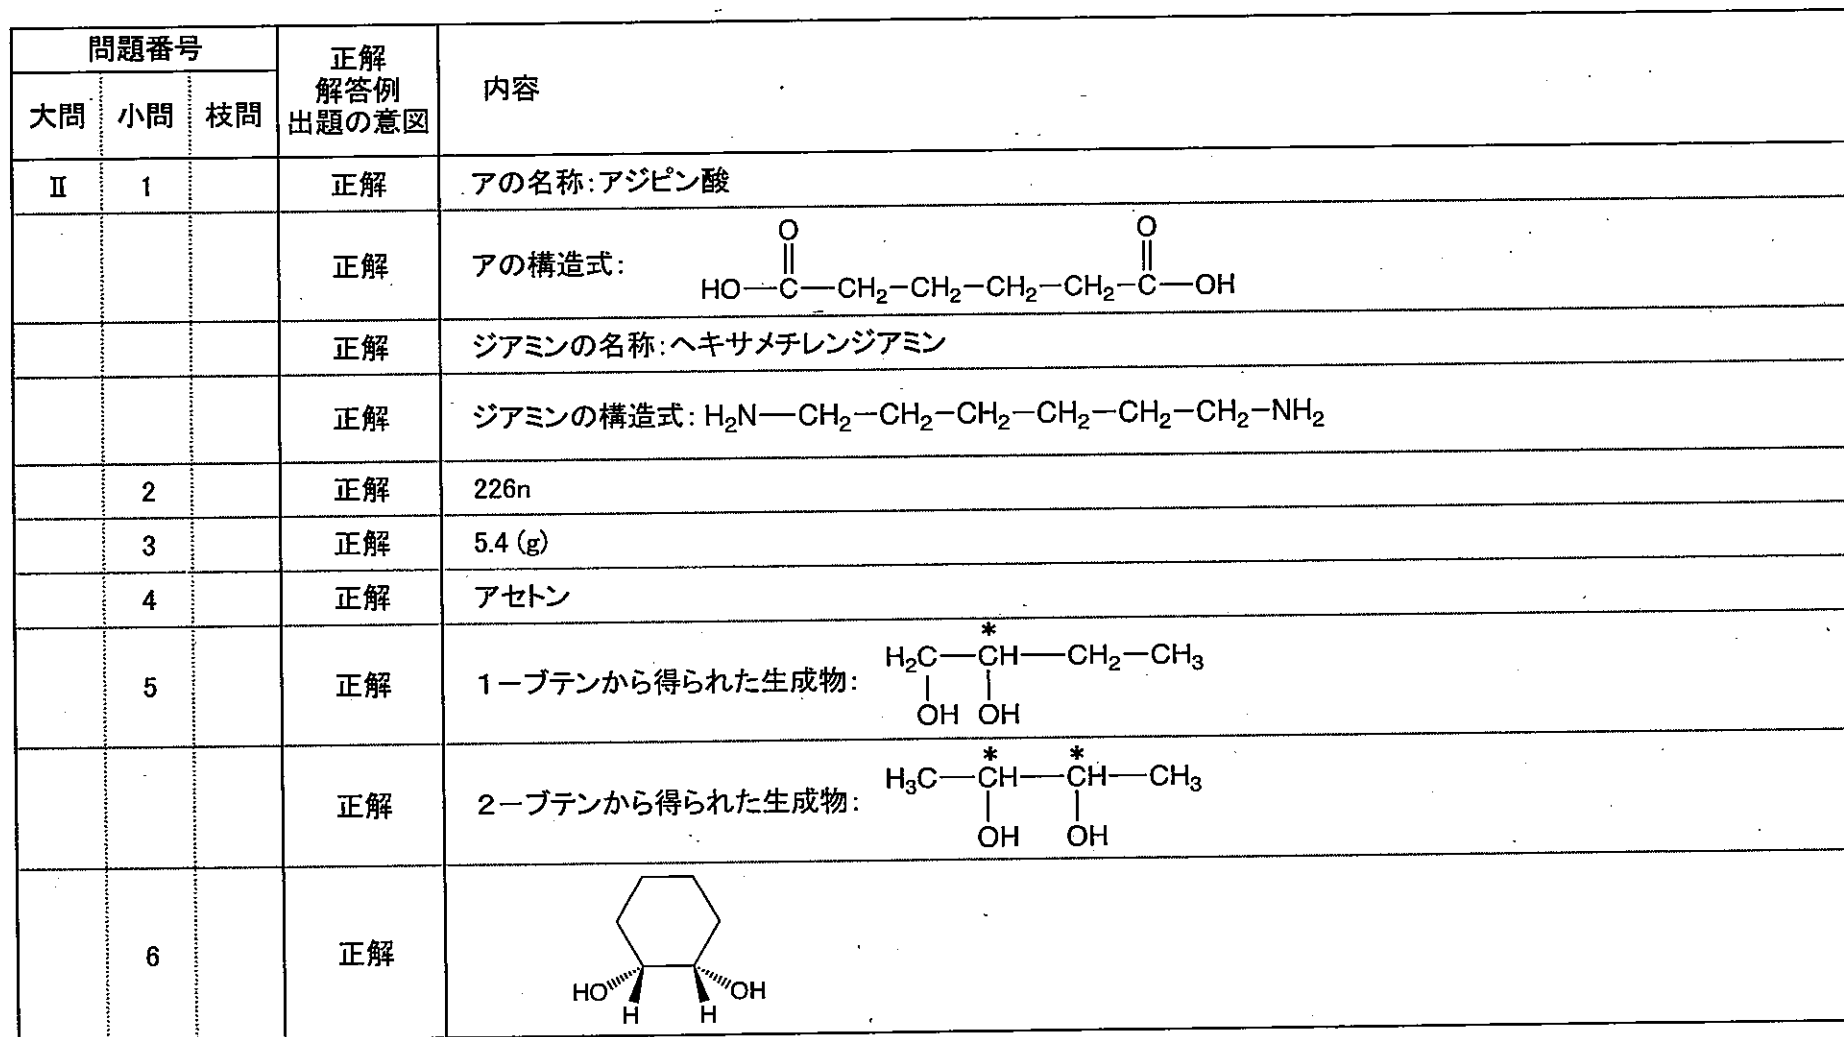 問題番号
正解
解答例
出題の意図
内容
大問 小問 枝問
Ⅱ 1 正解 アの名称：アジピン酸
正解 アの構造式：
O O
HO—C—CH₂—CH₂—CH₂—CH₂—C—OH
正解 ジアミンの名称：ヘキサメチレンジアミン
正解 ジアミンの構造式：H₂N—CH₂—CH₂—CH₂—CH₂—CH₂—CH₂—NH₂
2 正解 226n
3 正解 5.4 (g)
4 正解 アセトン
5 正解 1－ブテンから得られた生成物：
*
H₂C—CH—CH₂—CH₃
OH OH
正解 2－ブテンから得られた生成物：
* *
H₃C—CH—CH—CH₃
OH OH
6 正解
HO OH
H H